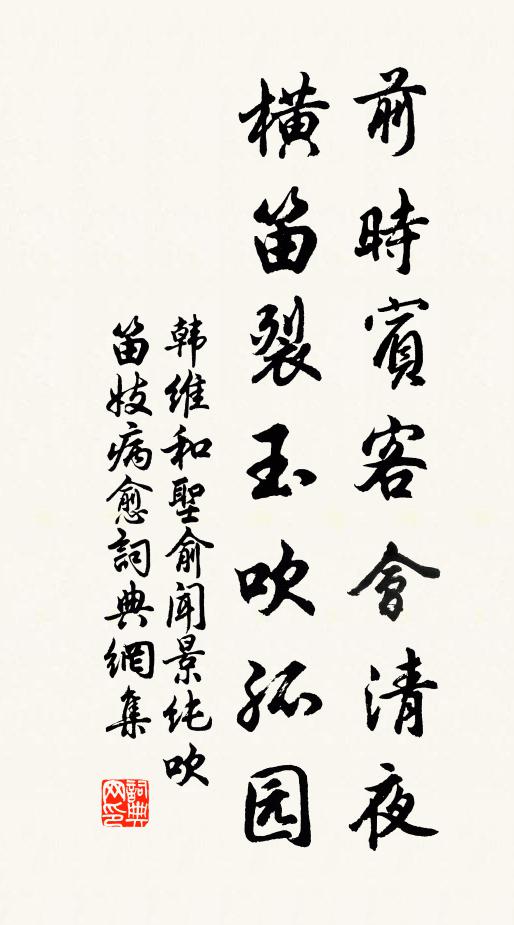 前時賓客會清夜
橫笛裂玉吹孤园
韩維和聖俞闻景纯吹
笛妓病愈詞典網集
詞典
网印